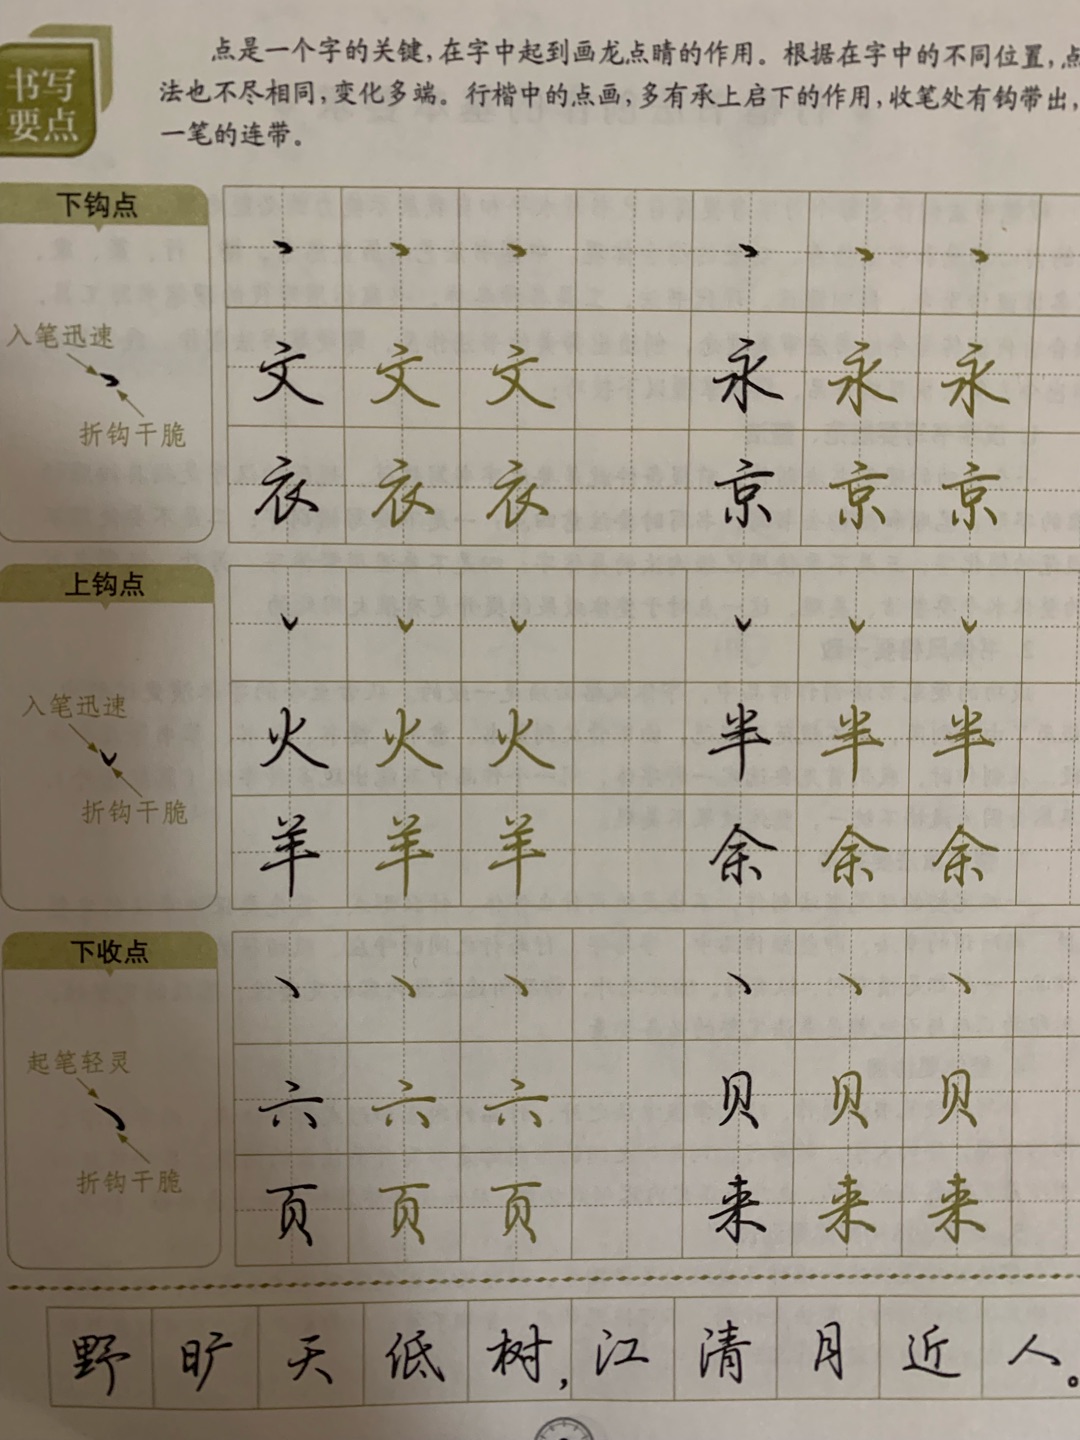 书写
要点
点是一个字的关键,在字中起到画龙点睛的作用。根据在字中的不同位置,点
法也不尽相同,变化多端。行楷中的点画,多有承上启下的作用,收笔处有钩带出,
一笔的连带。
下钩点
入笔迅速
折钩干脆
文 文 文 永 永 永
衣 衣 衣 京 京 京
上钩点
入笔迅速
折钩干脆
火 火 火 半 半 半
羊 羊 羊 余 余 余
下收点
起笔轻灵
折钩干脆
六 六 六 贝 贝 贝
页 页 页 来 来 来
野旷天低树,江清月近人。